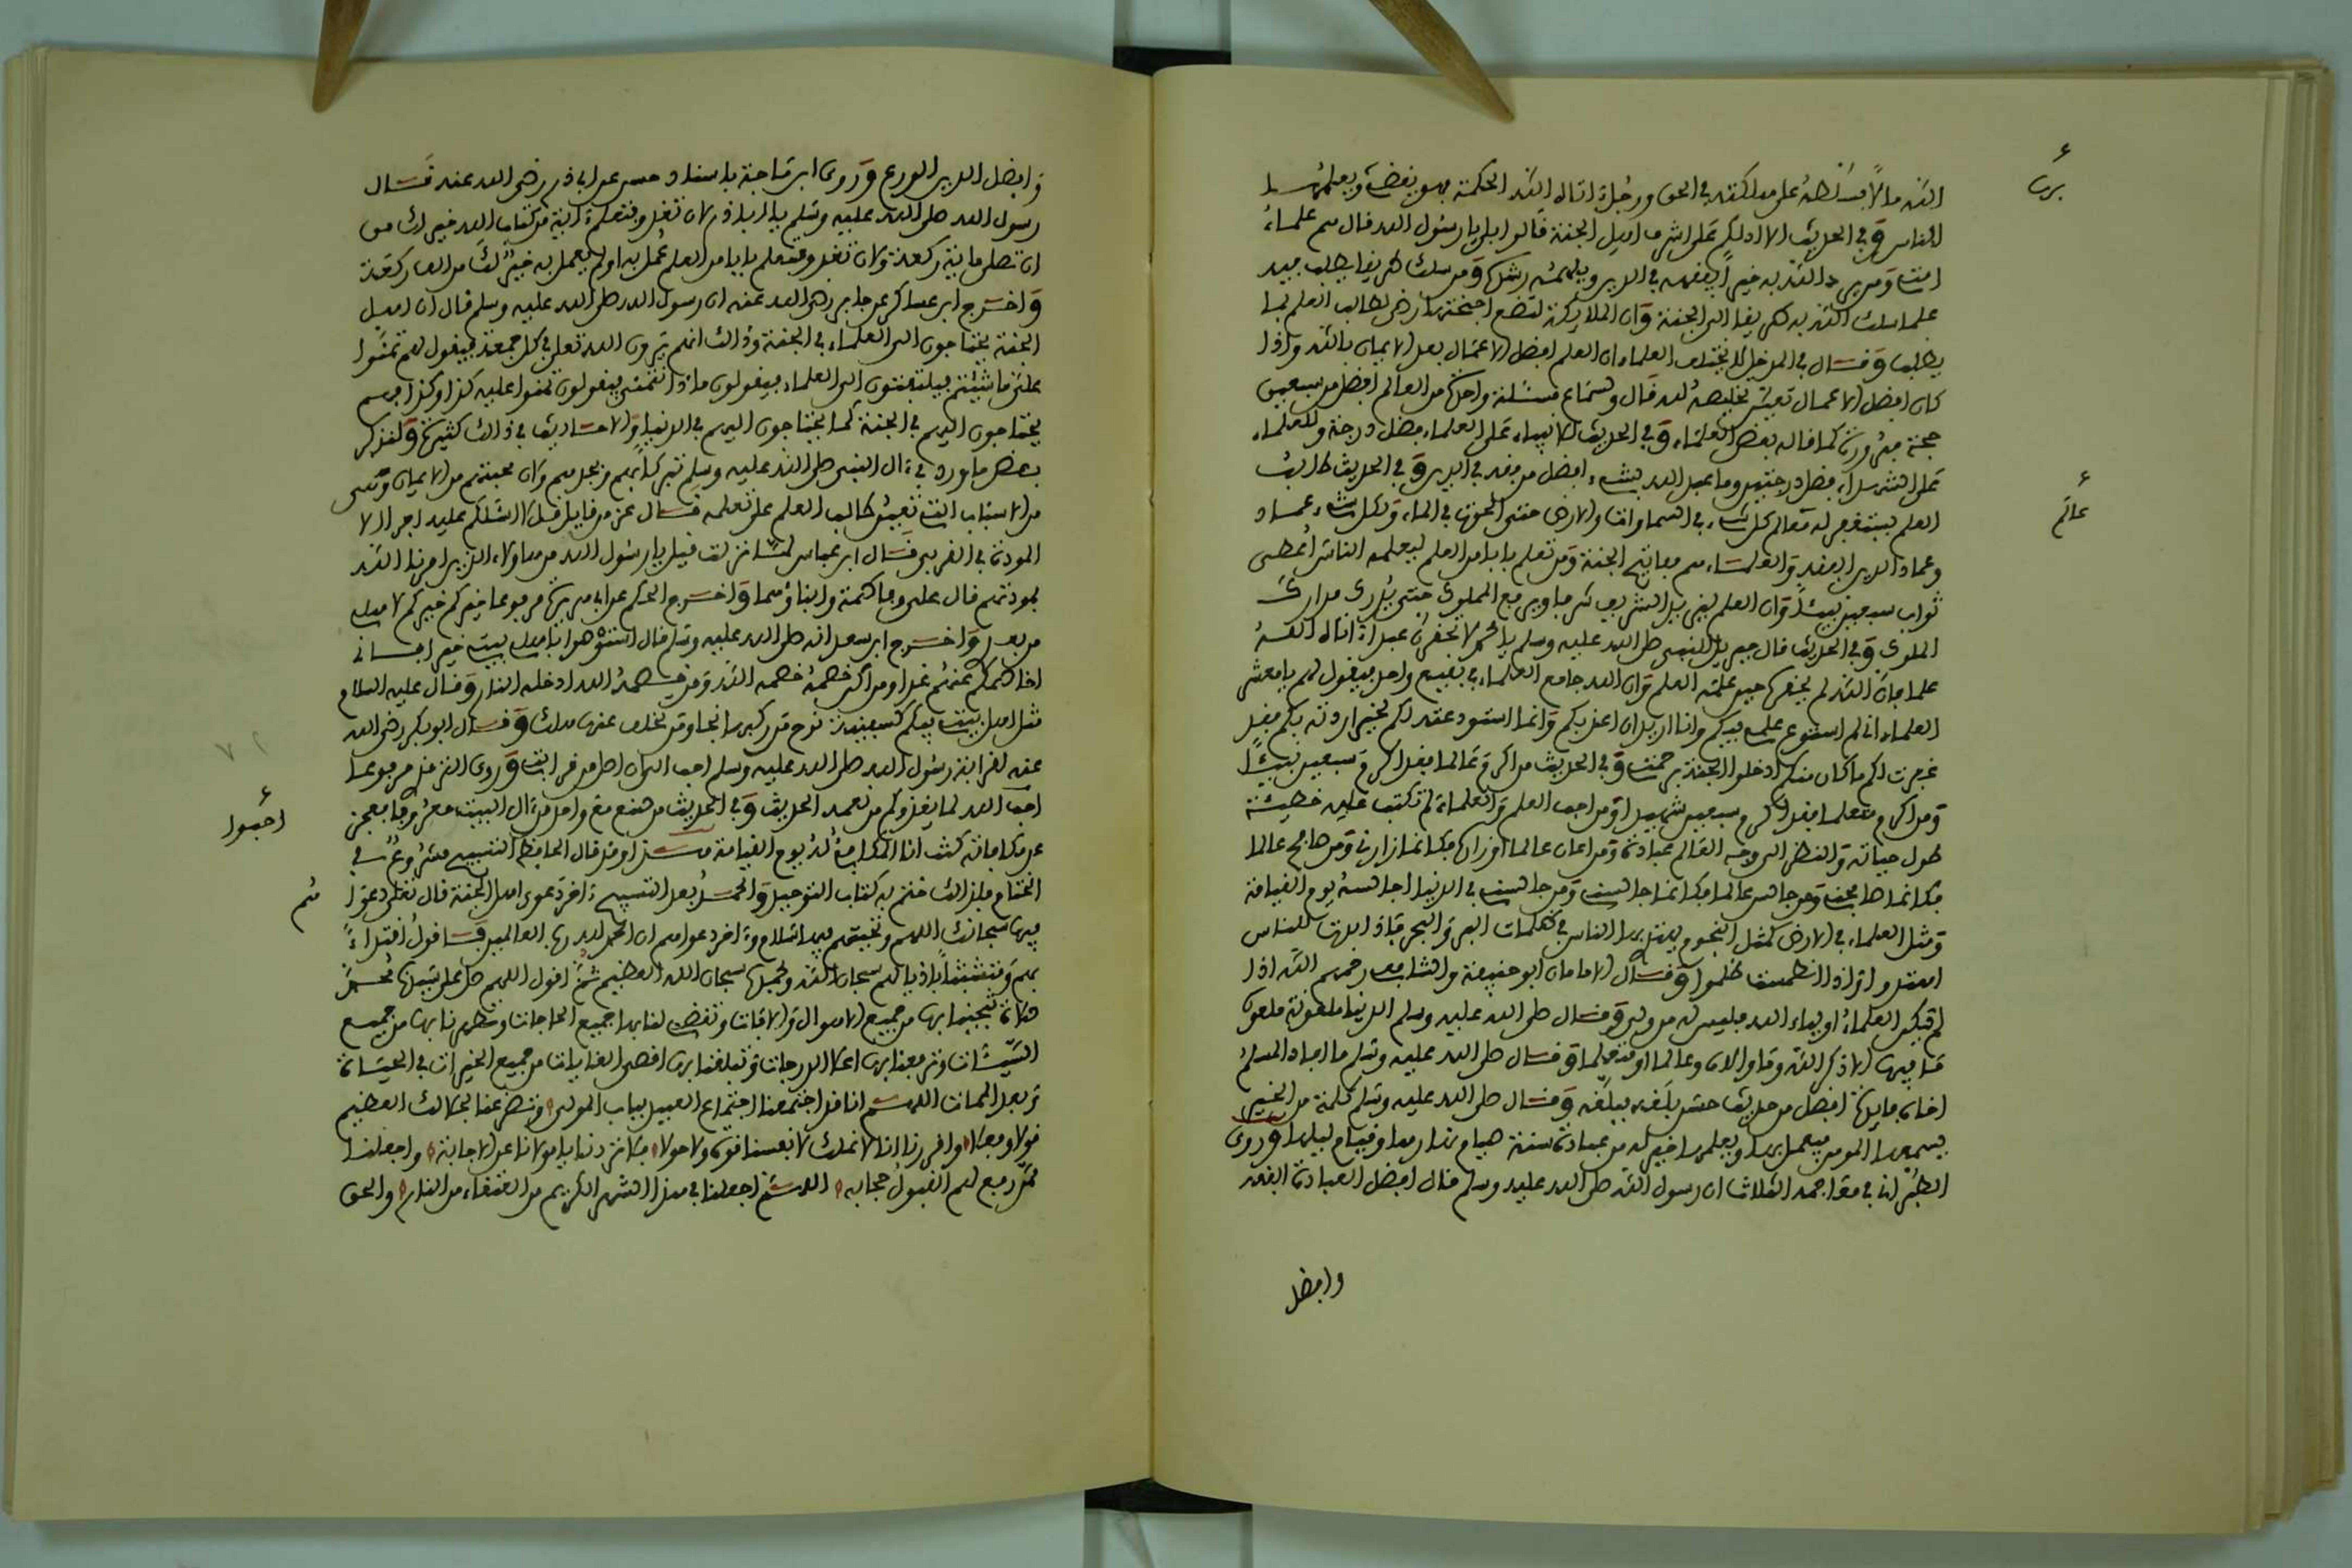 الله مالا فسلطه على هلكته في الحق ورجل اتاه الله الحكمة فهو يقضي بها ويعلمها
الناس وفي الحديث الا ادلكم على اشراف اهل الجنة قالوا بلى يا رسول الله قال هم علماء
امتي ومن يرد الله به خيرا يفقهه في الدين ويلهمه رشده ومن سلك طريقا يطلب فيه
علما سلك الله به طريقا الى الجنة وان الملائكة لتضع اجنحتها رضى لطالب العلم بما
يطلب وقال في المدخل لا يختلف العلماء ان العلم افضل الاعمال بعد الايمان بالله واذا
كان افضل الاعمال تعين تخليصه لله قال وسماع مسئلة واحدة من العالم افضل من سبعين
حجة مبرورة كما قاله بعض العلماء وفي الحديث للانبياء على العلماء فضل درجة وللعلماء
على الشهداء فضل درجتين وما عبد الله بشيء افضل من فقه في الدين وفي الحديث طالب
العلم يستغفر له كل شيء في السماوات والارض حتى الحوت في الماء ولكل شيء عماد
وعماد الدين الفقه والعلماء هم مفاتيح الجنة ومن تعلم بابا من العلم ليعلمه الناس اعطي
ثواب سبعين نبيئا وان العلم ليزيد الشريف شرفا ويرفع المملوك حتى يدرك مدارك
الملوك وفي الحديث قال جبريل للنبي صلى الله عليه وسلم يا محمد لا تحقرن عبدا اتاه الله
علما فان الله لم يحقره حين علمه العلم وان الله جامع العلماء في بقيع واحد فيقول لهم يا معشر
العلماء اني لم استودع علمي فيكم وانا اريد ان اعذبكم وانما استودعته لكم لخير اردته بكم فقد
غفرت لكم ما كان منكم ادخلوا الجنة برحمتي وفي الحديث من اكرم عالما فقد اكرم سبعين نبيئا
ومن اكرم متعلما فقد اكرم سبعين شهيدا ومن احب العلم والعلماء لم تكتب عليه خطيئة
طول حياته والنظر الى وجه العالم عبادة ومن اعان عالما او زاره فكانما زارني ومن صافح عالما
فكانما صافحني ومن جالس عالما فكانما جالسني ومن جالسني في الدنيا اجلسه يوم القيامة
ومثل العلماء في الارض كمثل النجوم يهتدي بها الناس في ظلمات البر والبحر فاذا ابدت للناس
اهتدوا واذا انطمست ظلموا وقال الامامان ابو حنيفة والشافعي رحمهم الله اذا
لم تكن العلماء اولياء الله فليس له من ولي وقال صلى الله عليه وسلم الدنيا ملعونة ملعون
ما فيها الا ذكر الله وما والاه وعالما او متعلما وقال صلى الله عليه وسلم ما افاد المسلم
اخاه فايدة افضل من حديث حسن بلغه فبلغه وقال صلى الله عليه وسلم كلمة من الخير
يسمعها المومن فيعمل بها ويعلمها خير له من عبادة سنة صيام نهارها وقيام ليلها وروى
الطبراني في معاجمه الثلاث ان رسول الله صلى الله عليه وسلم قال افضل العبادة الفقه
وافضل
برب
عالم
وافضل الدين الورع وروى ابن ماجة باسناد حسن عن ابي ذر رضي الله عنه قال
رسول الله صلى الله عليه وسلم يا ابا ذر لان تغدو فتتعلم ءاية من كتاب الله خير لك من
ان تصلي ماية ركعة ولان تغدو فتتعلم بابا من العلم عمل به او لم يعمل به خير لك من الف ركعة
واخرج ابن عساكر عن جابر رضي الله عنه ان رسول الله صلى الله عليه وسلم قال ان اهل
الجنة يحتاجون الى العلماء في الجنة وذالك انهم يرون الله تعلى في كل جمعة فيقول لهم تمنوا
علي ما شيتم فيلتفتون الى العلماء فيقولون ماذا نتمنى فيقولون تمنوا عليه كذا وكذا فهم
يحتاجون اليهم في الجنة كما يحتاجون اليهم في الدنيا والاحاديث في ذالك كثيرة ولنذكر
بعض ما ورد في ءال النبي صلى الله عليه وسلم تبركا بهم وبجدهم وان محبتهم من الايمان وهي
من الاسباب التي تعين طالب العلم على تعلمه قال عز من قايل قل لا اسئلكم عليه اجرا الا
المودة في القربى قال ابن عباس لما نزلت قيل يا رسول الله من هاولاء الذين امرنا الله
بمودتهم قال علي وفاطمة وابناؤهما واخرج الحكم عن ابي هريرة مرفوعا خيركم خيركم لاهلي
من بعدي واخرج ابن سعد انه صلى الله عليه وسلم قال استوصوا باهل بيتي خيرا فاني
اخاصمكم عنهم غدا ومن اكن خصمه خصمه الله ومن خصمه الله ادخله النار وقال عليه السلام
مثل اهل بيتي فيكم كسفينة نوح من ركبها نجا ومن تخلف عنها هلك وقال ابو بكر رضي الله
عنه لقرابة رسول الله صلى الله عليه وسلم احب الي ان اصل من قرابتي وروى الترمذي مرفوعا
احبوا الله لما يغذوكم من نعمه الحديث وفي الحديث من صنع مع واحد من ءال البيت معروفا فعجز
عن مكافاته كنت انا المكافئ له يوم القيامة هذا وقد قال الحافظ التسبيح مشروع في
الختام فلذالك ختم به كتاب التوحيد والحمد بعد التسبيح ءاخر دعوى اهل الجنة قال تعلى دعواهم
فيها سبحانك اللهم وتحيتهم فيها سلام وءاخر دعواهم ان الحمد لله رب العالمين فاقول اقتداء
بهم وتشبثا باذيالهم سبحان الله وبحمده سبحان الله العظيم ثم اقول اللهم صل على سيدنا محمد
صلاة تنجينا بها من جميع الاهوال والافات وتقضي لنا بها جميع الحاجات وتطهرنا بها من جميع
السيئات وترفعنا بها اعلا الدرجات وتبلغنا بها اقصى الغايات من جميع الخيرات في الحياة
وبعد الممات اللهم انا قد اجتمعنا اجتماع العبيد بباب المولى وتضرعنا لجلالك العظيم
قولا وفعلا واقررنا اننا لا نملك لانفسنا قوة ولا حولا فلا تردنا يا مولانا عن الاجابة واجعلنا
ممن رفع لهم القبول حجابه اللهم اجعلنا في هذا الشهر الكريم من العتقاء من النار والحق
احبوا
هم